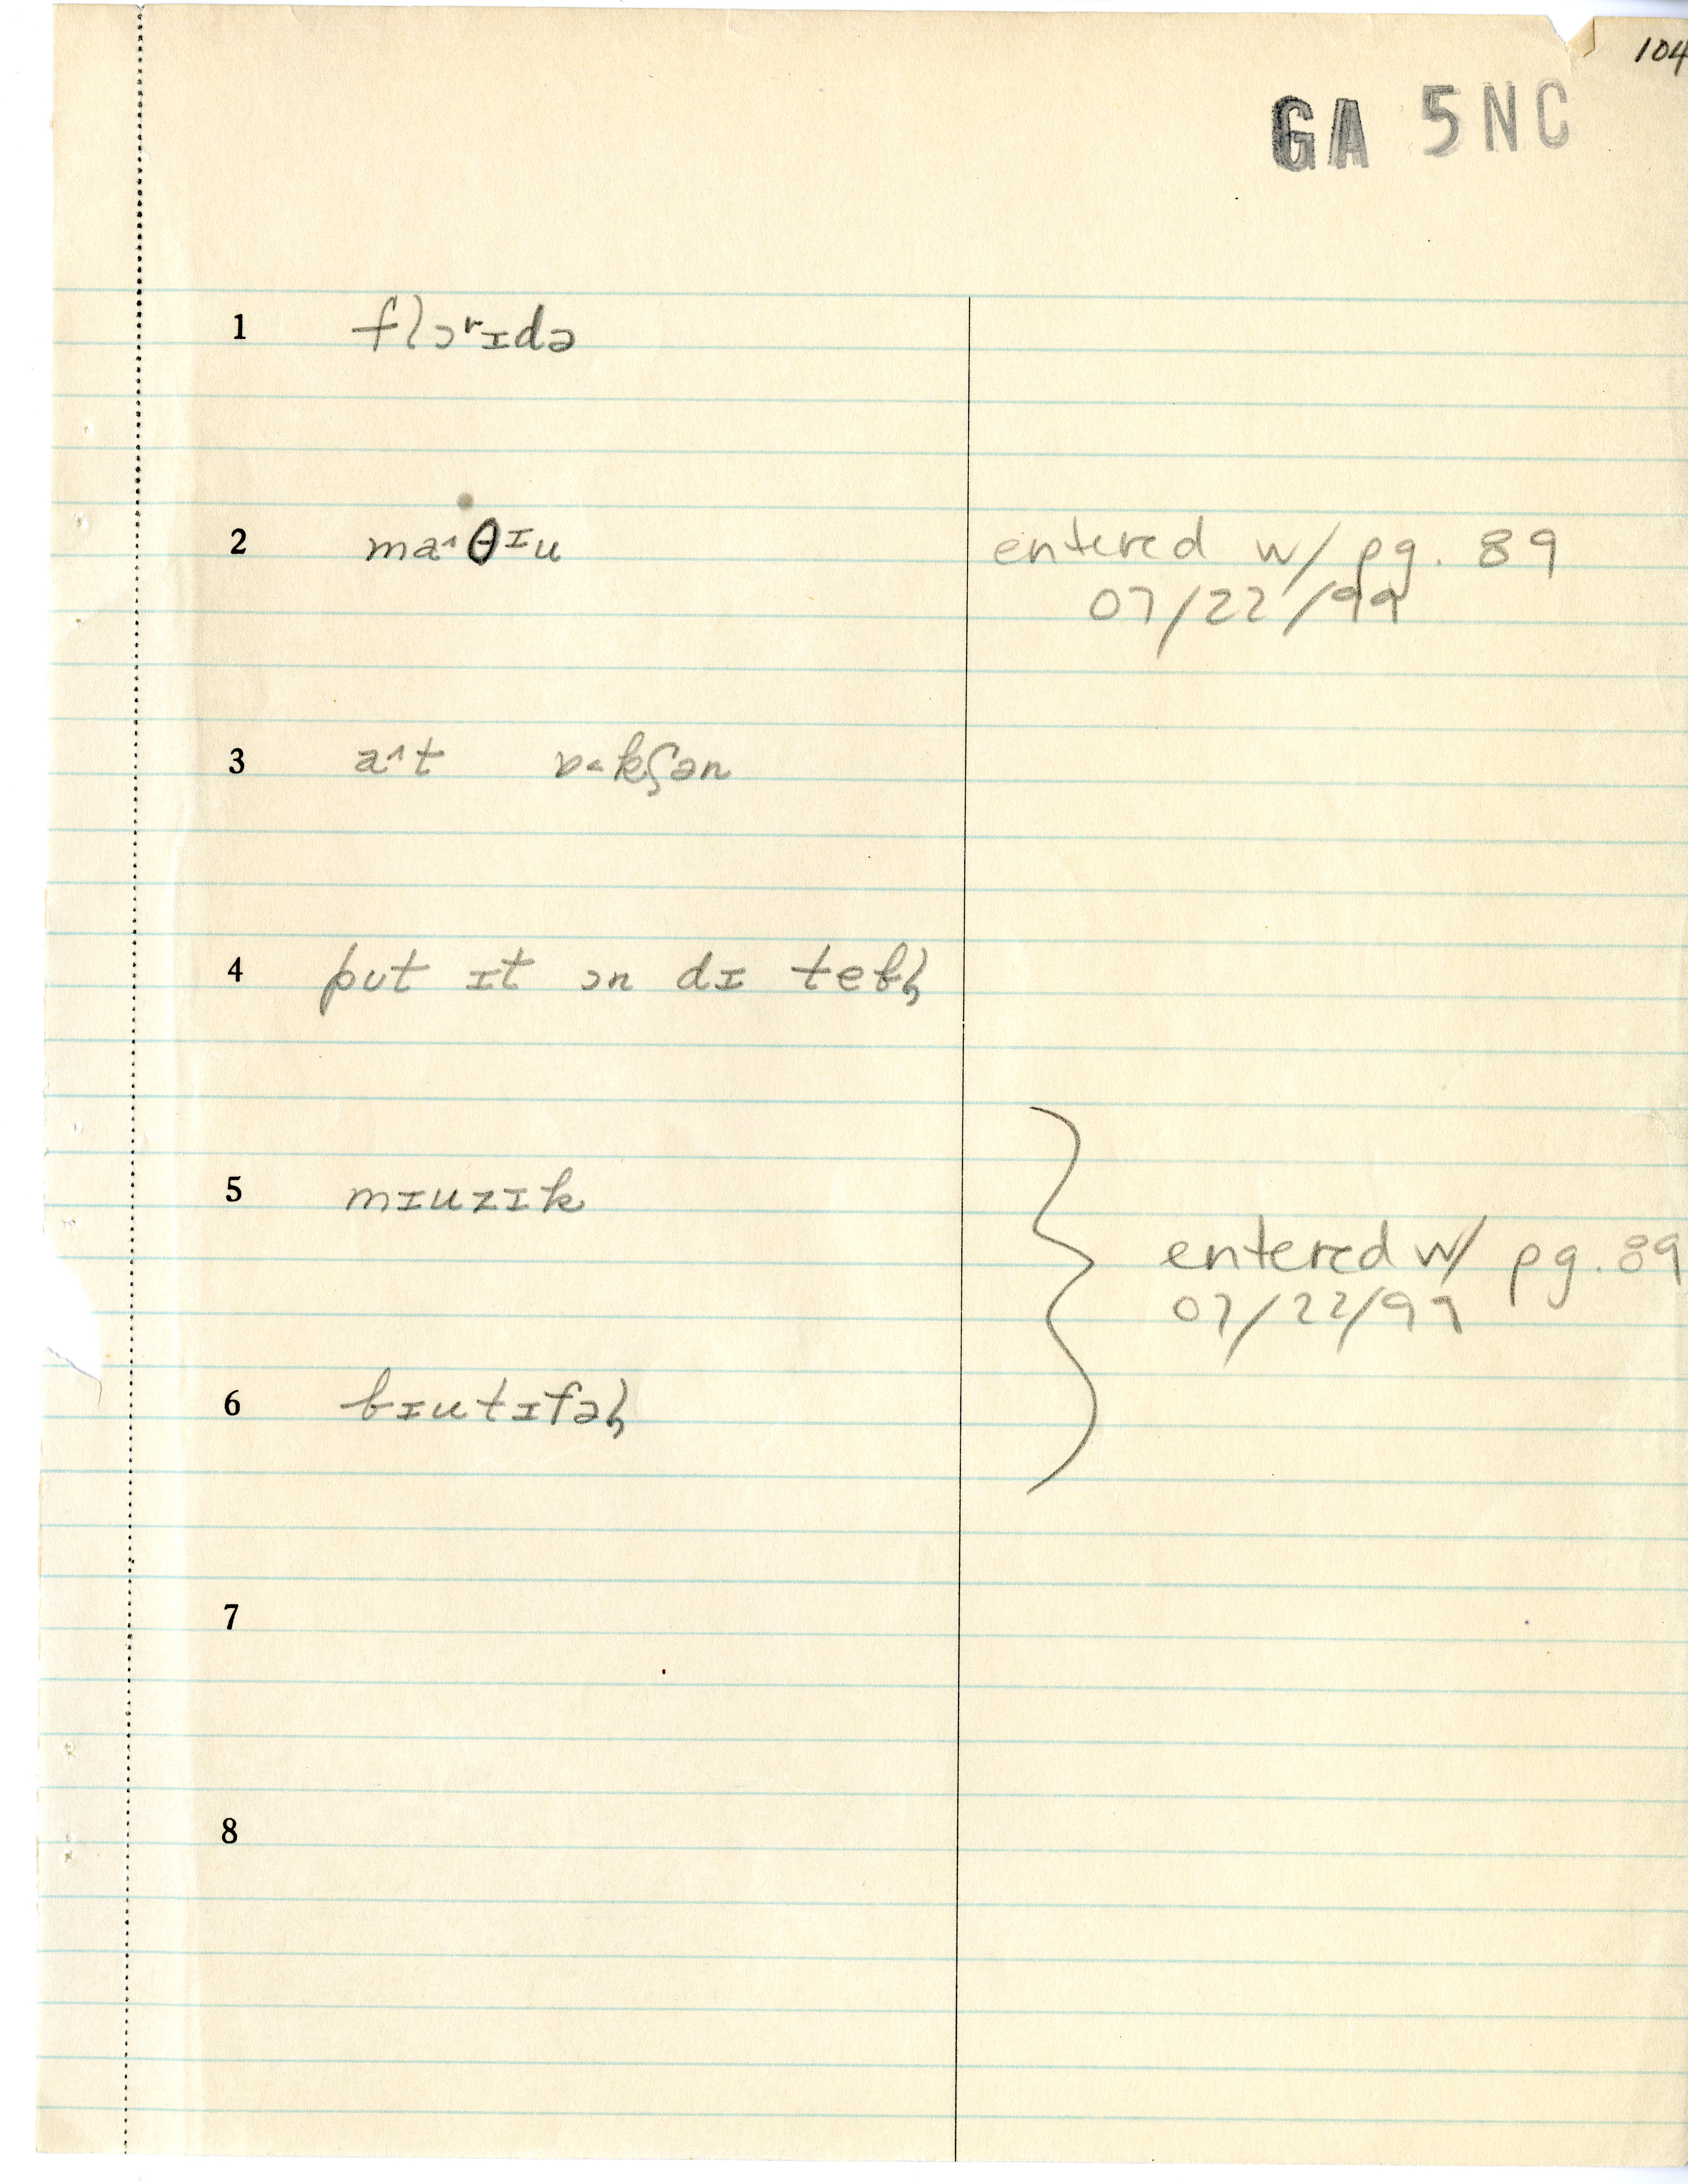 104
GA 5NC
1 flɔʳɪdə
2 maˑ^θɪu entered w/ pg. 89
07/22/99
3 a^t ɒ˂kʃən
4 put ɪt ɔn dɪ tebl̩
5 mɪuzɪk
entered w/ pg. 89
07/22/99
6 bɪutɪfəl̩
7
8